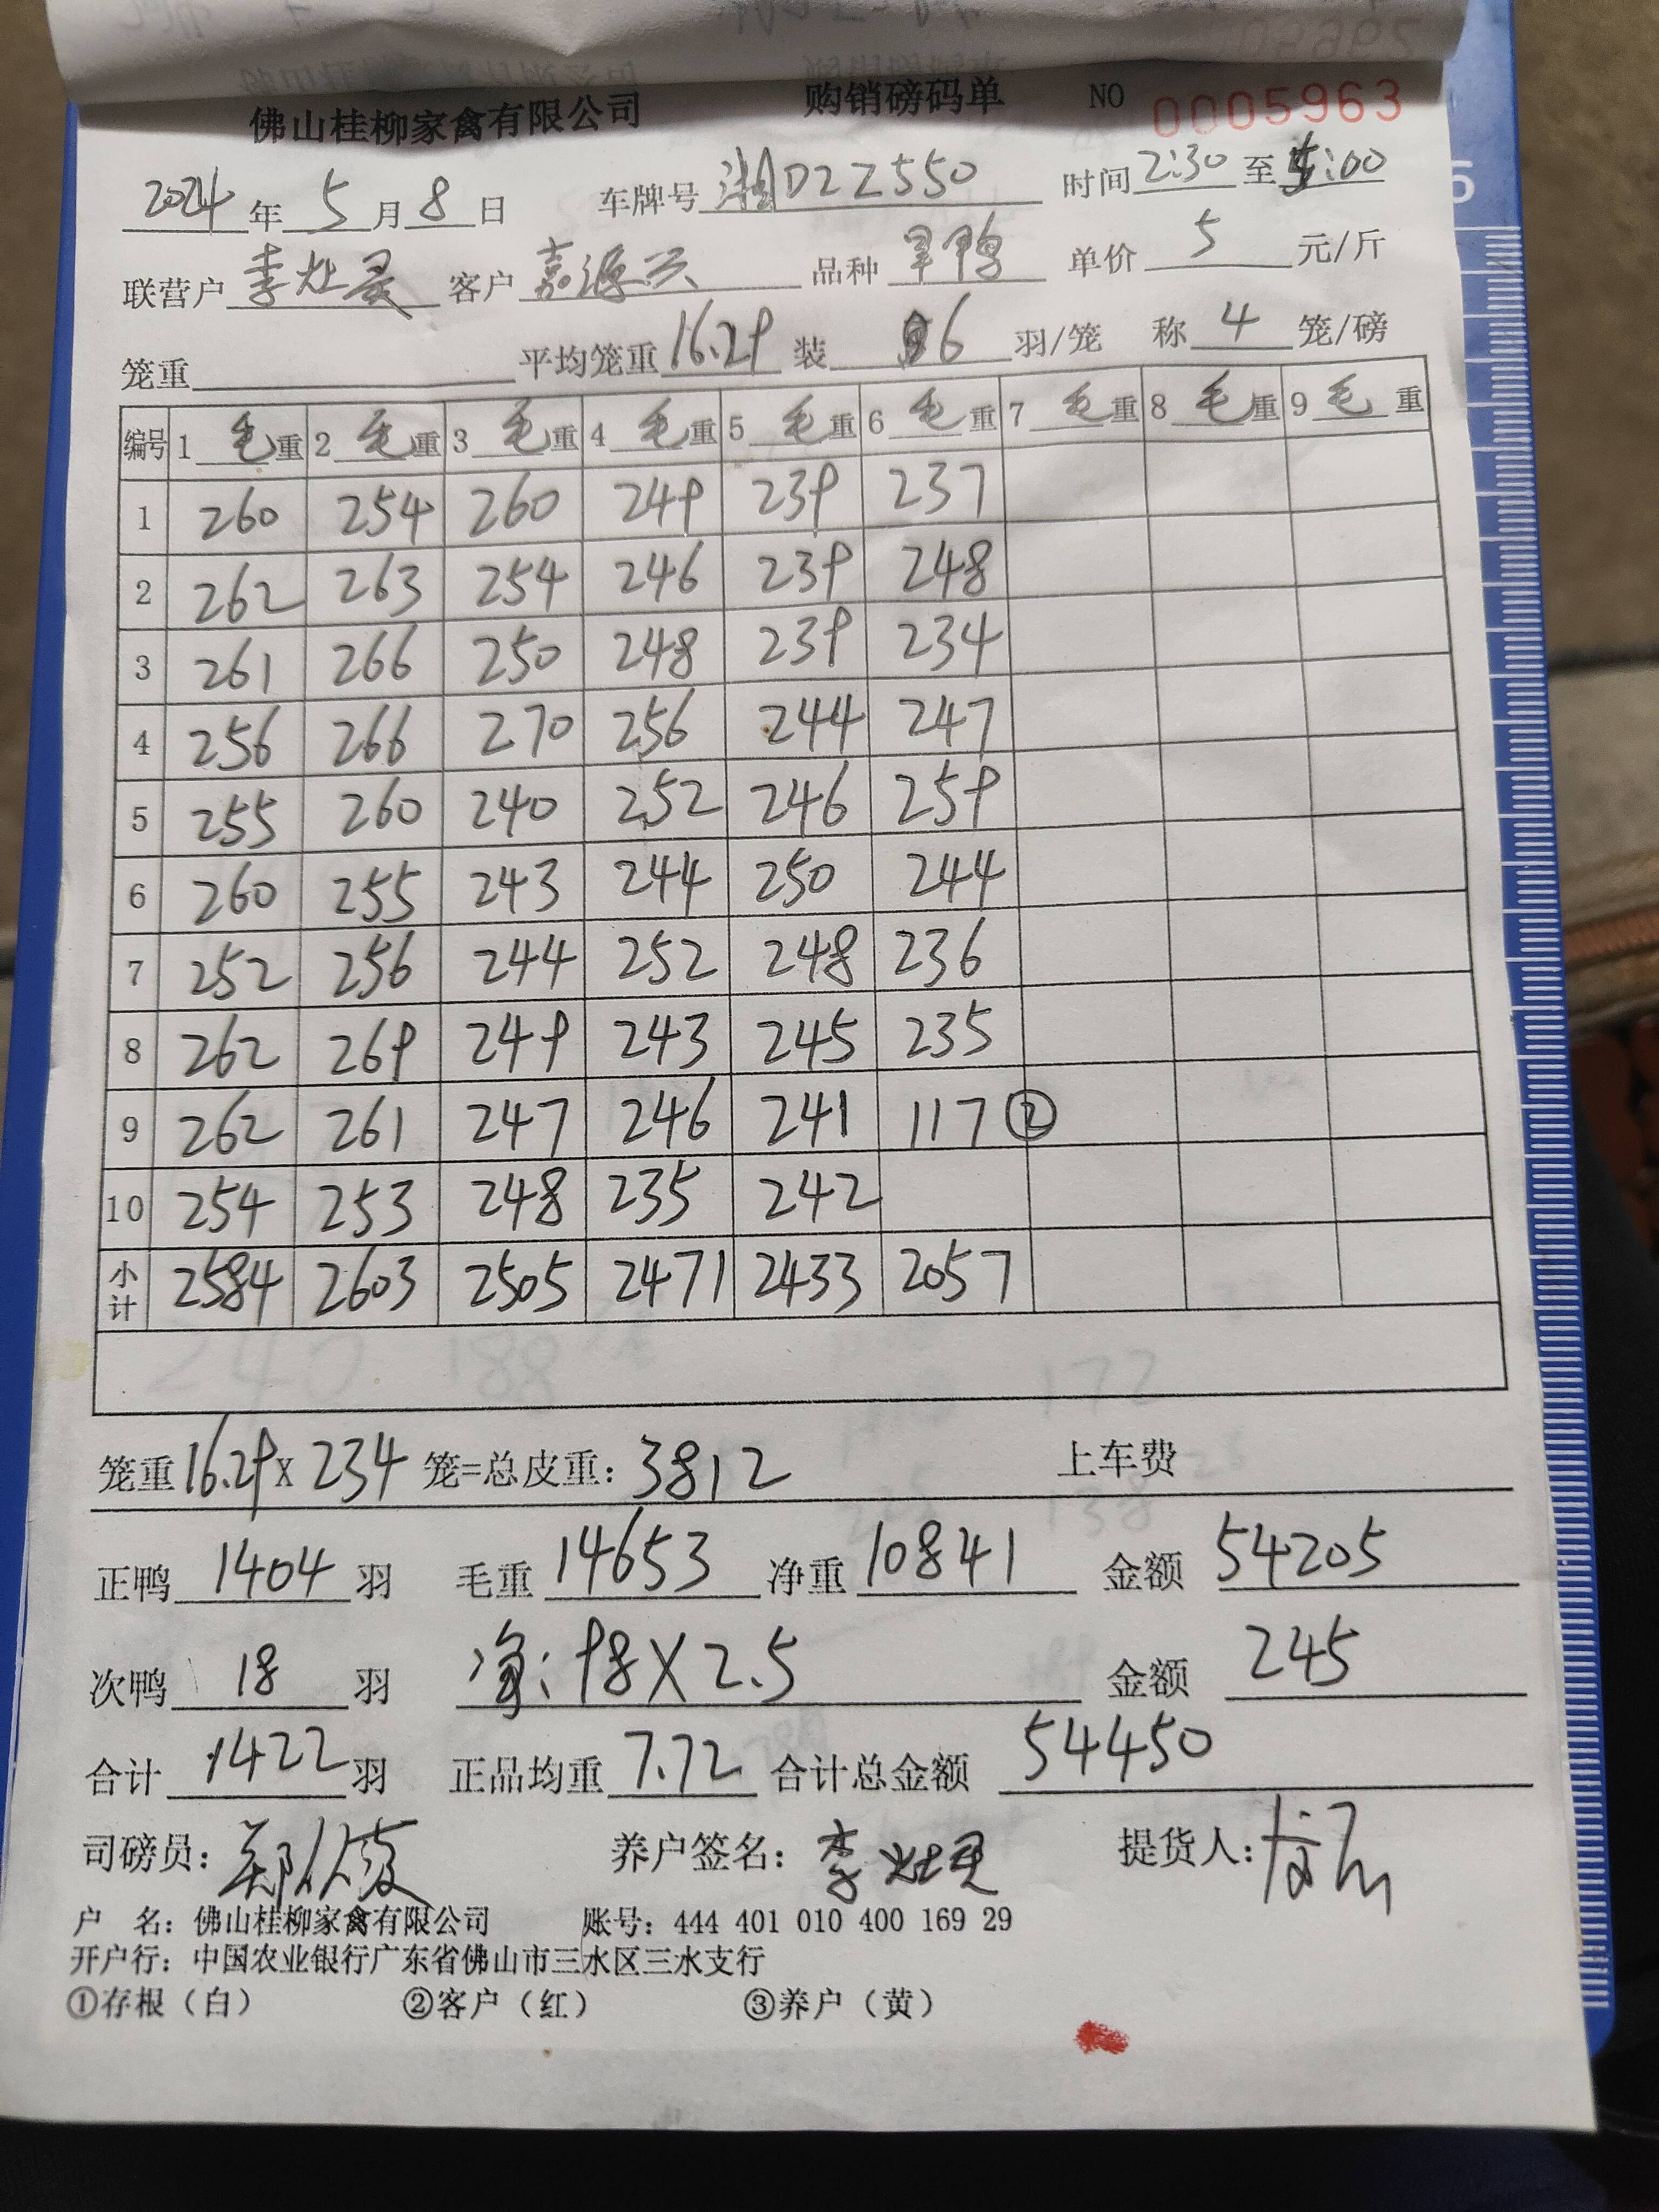 佛山桂柳家禽有限公司 购销磅码单 NO 0005963
2024 年 5 月 8 日 车牌号 湘D2Z550 时间 2:30 至 5:00
联营户 李灶 客户 嘉源兴 品种 旱鸭 单价 5 元/斤
笼重 平均笼重 16.29 装 6 羽/笼 称 4 笼/磅
编号 1 毛重 2 毛重 3 毛重 4 毛重 5 毛重 6 毛重 7 毛重 8 毛重 9 毛重
1 260 254 260 249 239 237
2 262 263 254 246 239 248
3 261 266 250 248 239 234
4 256 266 270 256 244 247
5 255 260 240 252 246 259
6 260 255 243 244 250 244
7 252 256 244 252 248 236
8 262 269 249 243 245 235
9 262 261 247 246 241 117 ②
10 254 253 248 235 242
小计 2584 2603 2505 2471 2433 2057
笼重 16.29 x 234 笼=总皮重: 3812 上车费
正鸭 1404 羽 毛重 14653 净重 10841 金额 54205
次鸭 18 羽 净: 98 X 2.5 金额 245
合计 1422 羽 正品均重 7.72 合计总金额 54450
司磅员: 郑 养户签名: 李灶 提货人:
户 名: 佛山桂柳家禽有限公司 账号: 444 401 010 400 169 29
开户行: 中国农业银行广东省佛山市三水区三水支行
①存根（白） ②客户（红） ③养户（黄）